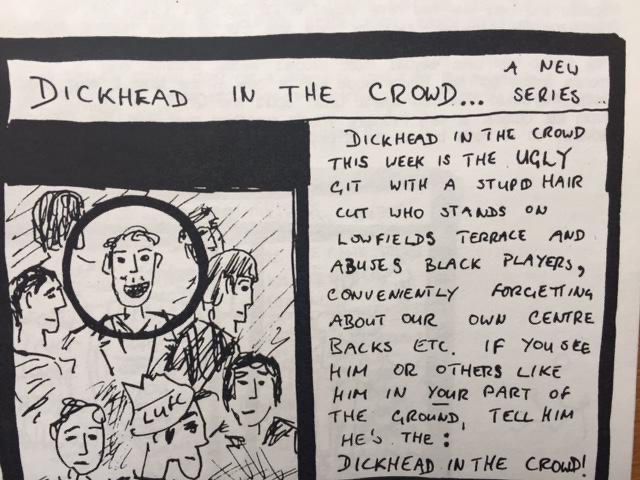 DICKHEAD IN THE CROWD... A NEW
SERIES..
DICKHEAD IN THE CROWD
THIS WEEK IS THE UGLY
GIT WITH A STUPID HAIR
CUT WHO STANDS ON
LOWFIELDS TERRACE AND
ABUSES BLACK PLAYERS,
CONVENIENTLY FORGETTING
ABOUT OUR OWN CENTRE
BACKS ETC. IF YOU SEE
HIM OR OTHERS LIKE
HIM IN YOUR PART OF
THE GROUND, TELL HIM
HE'S THE:
DICKHEAD IN THE CROWD!
LUFC